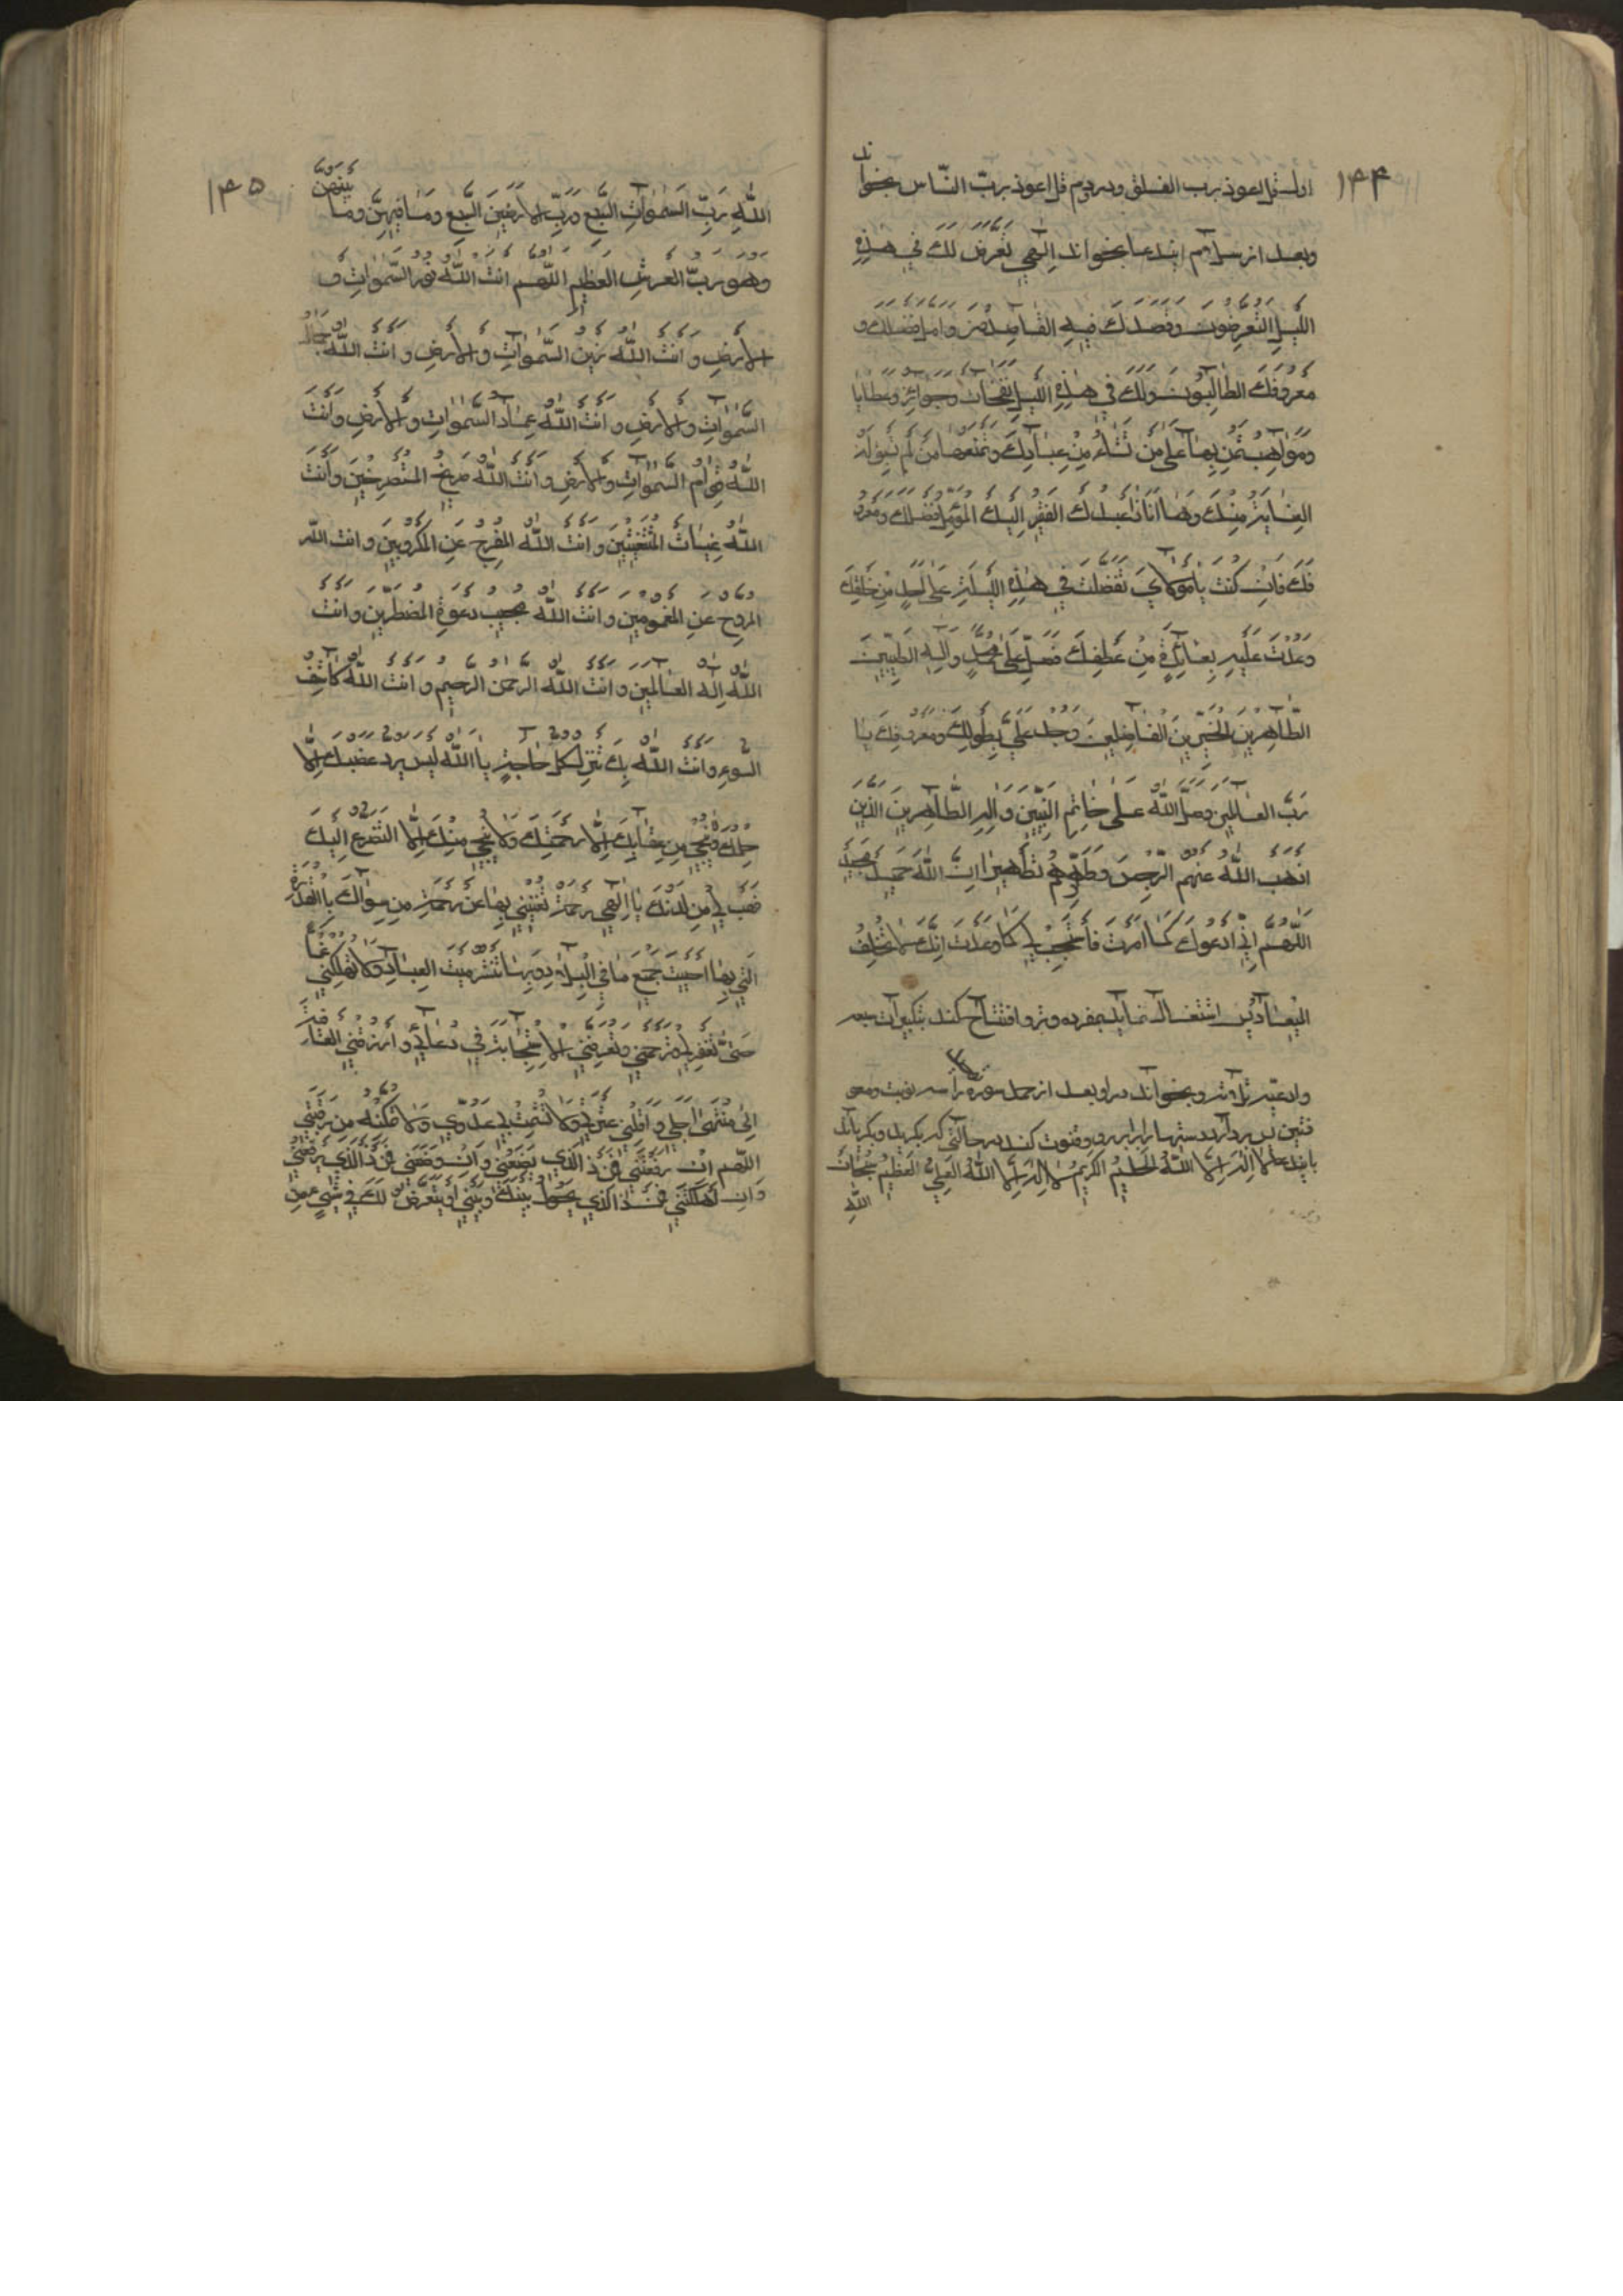 ۱۴۴
اول قل اعوذ برب الفلق ودر دوم قل اعوذ بربّ النّاس بخواند
وبعد از سلام ایندعا بخواند اِلٰهی تَعَرَّضَ لَكَ فی هٰذِهِ
اللَّیلِ المُتَعَرِّضُونَ وَقَصَدَكَ فیهِ القٰاصِدُونَ وَاَمَّلَ فَضلَكَ وَ
مَعرُوفَكَ الطّٰالِبُونَ وَلَكَ فی هٰذِهِ اللَّیلِ نَفَحٰاتٌ وَجَوٰائِزُ وَعَطٰایٰا
وَمَوٰاهِبُ تَمُنُّ بِهٰا عَلیٰ مَن تَشٰاءُ مِن عِبٰادِكَ وَتَمنَعُهٰا مَن لَم تَسبِق لَهُ
العِنٰایَةُ مِنكَ وَهٰا اَنَا ذٰا عَبدُكَ الفَقیرُ اِلَیكَ المُؤَمِّلُ فَضلَكَ وَمَعرُو
فَكَ فَاِن كُنتَ یٰا مَولٰایَ تَفَضَّلتَ فی هٰذِهِ اللَّیلَةِ عَلیٰ اَحَدٍ مِن خَلقِكَ
وَعُدتَ عَلَیهِ بِعٰائِدَةٍ مِن عَطفِكَ فَصَلِّ عَلیٰ مُحَمَّدٍ وَآلِهِ الطَّیِّبینَ
الطّٰاهِرینَ الخَیِّرینَ الفٰاضِلینَ وَجُد عَلَیَّ بِطَولِكَ وَمَعرُوفِكَ یٰا
رَبَّ العٰالَمینَ وَصَلَّی اللّٰهُ عَلیٰ خٰاتَمِ النَّبِیّینَ وَآلِهِ الطّٰاهِرینَ الَّذینَ
اَذهَبَ اللّٰهُ عَنهُمُ الرِّجسَ وَطَهَّرَهُم تَطهیرًا اِنَّ اللّٰهَ حَمیدٌ مَجیدٌ
اَللّٰهُمَّ اِنّی اَدعُوكَ كَمٰا اَمَرتَ فَاستَجِب لی كَمٰا وَعَدتَ اِنَّكَ لٰا تُخلِفُ
المیعٰادَ پس اشتغال نماید بمفرده وتر و افتتاح کند بتکبیرات سبعه
وادعیه ثلاثه و بخواند در او بعد از حمد سوره را سه نوبت ومعو
ذتین پس بردارد دستها را برابر رو وقنوت کند در حالتی که بگرید ویا بگریاند
بایندعا لٰا اِلٰهَ اِلَّا اللّٰهُ الحَلیمُ الكَریمُ لٰا اِلٰهَ اِلَّا اللّٰهُ العَلِیُّ العَظیمُ سُبحٰانَ
اللّٰهِ
۱۴۵
اللّٰهِ رَبِّ السَّمٰوٰاتِ السَّبعِ وَرَبِّ الاَرَضینَ السَّبعِ وَمٰا فیهِنَّ وَمٰا بَینَهُنَّ
وَهُوَ رَبُّ العَرشِ العَظیمِ اَللّٰهُمَّ اَنتَ اللّٰهُ نُورُ السَّمٰوٰاتِ وَ
الاَرضِ وَاَنتَ اللّٰهُ زَینُ السَّمٰوٰاتِ وَالاَرضِ وَاَنتَ اللّٰهُ جَمٰالُ
السَّمٰوٰاتِ وَالاَرضِ وَاَنتَ اللّٰهُ عِمٰادُ السَّمٰوٰاتِ وَالاَرضِ وَاَنتَ
اللّٰهُ قِوٰامُ السَّمٰوٰاتِ وَالاَرضِ وَاَنتَ اللّٰهُ صَریخُ المُستَصرِخینَ وَاَنتَ
اللّٰهُ غِیٰاثُ المُستَغیثینَ وَاَنتَ اللّٰهُ المُفَرِّجُ عَنِ المَكرُوبینَ وَاَنتَ اللّٰهُ
المُرَوِّحُ عَنِ المَغمُومینَ وَاَنتَ اللّٰهُ مُجیبُ دَعوَةِ المُضطَرّینَ وَاَنتَ
اللّٰهُ اِلٰهُ العٰالَمینَ وَاَنتَ اللّٰهُ الرَّحمٰنُ الرَّحیمُ وَاَنتَ اللّٰهُ كٰاشِفُ
السُّوءِ وَاَنتَ اللّٰهُ بِكَ تُنزَلُ كُلُّ حٰاجَةٍ یٰا اَللّٰهُ لَیسَ یَرُدُّ غَضَبَكَ اِلّٰا
حِلمُكَ وَلٰا یُنجی مِن عِقٰابِكَ اِلّٰا رَحمَتُكَ وَلٰا یُنجی مِنكَ اِلَّا التَّضَرُّعُ اِلَیكَ
فَهَب لی مِن لَدُنكَ یٰا اِلٰهی رَحمَةً تُغنینی بِهٰا عَن رَحمَةِ مَن سِوٰاكَ بِالقُدرَةِ
الَّتی بِهٰا اَحیَیتَ جَمیعَ مٰا فِی البِلٰادِ وَبِهٰا تَنشُرُ مَیتَ العِبٰادِ وَلٰا تُهلِكنی غَمًّا
حَتّیٰ تَغفِرَ لی وَتَرحَمَنی وَتُعَرِّفَنِی الاِستِجٰابَةَ فی دُعٰائی وَارزُقنِی العٰافِیَةَ
اِلیٰ مُنتَهیٰ اَجَلی وَاَقِلنی عَثرَتی وَلٰا تُشمِت بی عَدُوّی وَلٰا تُمَكِّنهُ مِن رَقَبَتی
اَللّٰهُمَّ اِن رَفَعتَنی فَمَن ذَا الَّذی یَضَعُنی وَاِن وَضَعتَنی فَمَن ذَا الَّذی یَرفَعُنی
وَاِن اَهلَكتَنی فَمَن ذَا الَّذی یَحُولُ بَینَكَ وَبَینی اَو یَتَعَرَّضُ لَكَ فی شَیءٍ مِن